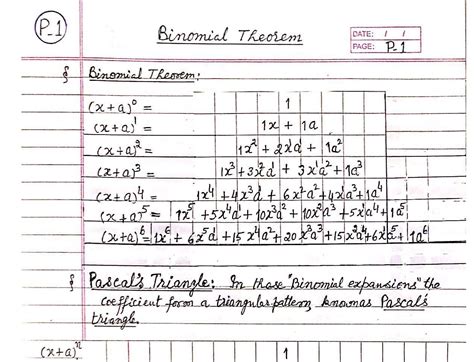 P-1
Binomial Theorem
DATE: / /
PAGE: P-1
Binomial Theorem:
(x+a)⁰ = 1
(x+a)¹ = 1x + 1a
(x+a)² = 1x² + 2xa¹ + 1a²
(x+a)³ = 1x³ + 3x²a¹ + 3x¹a² + 1a³
(x+a)⁴ = 1x⁴ + 4x³a¹ + 6x²a² + 4xa³ + 1a⁴
(x+a)⁵ = 1x⁵ + 5x⁴a¹ + 10x³a² + 10x²a³ + 5xa⁴ + 1a⁵
(x+a)⁶ = 1x⁶ + 6x⁵a¹ + 15x⁴a² + 20x³a³ + 15x²a⁴ + 6xa⁵ + 1a⁶
Pascal's Triangle: In these "Binomial expansions" the
coefficient form a triangular pattern, known as Pascal's
triangle.
(x+a)ⁿ 1